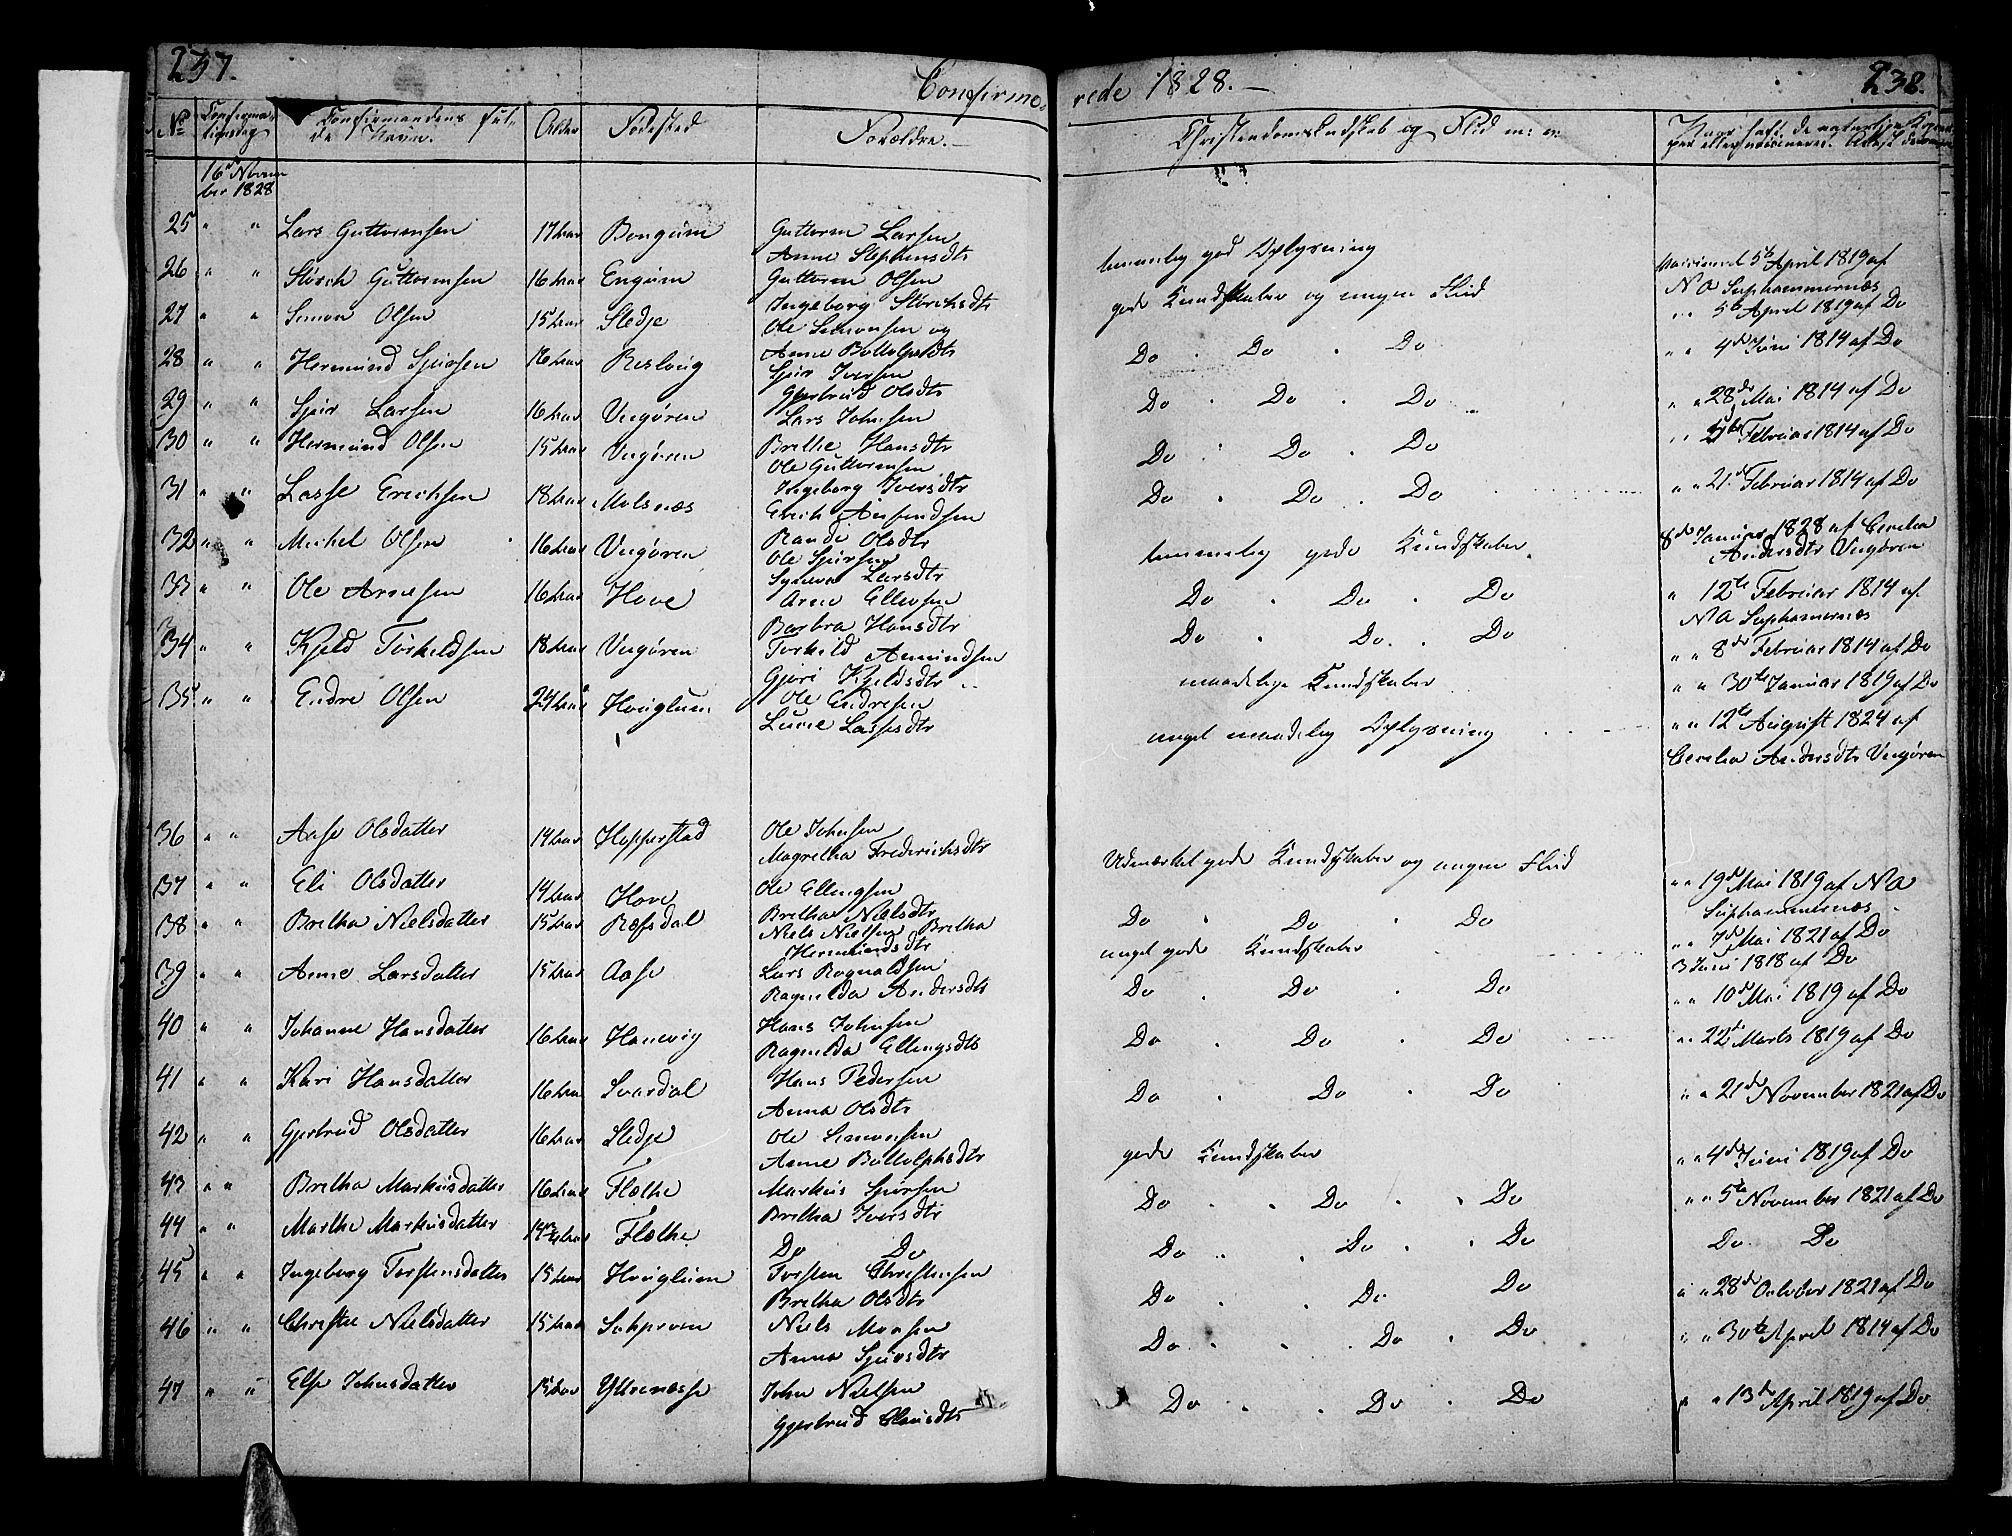 237.
Confirme-
rede 1828. —
238.
No
Confirma-
tionsdag
Confirmandens ful-
de Navn.
Alder
Fødested
Forældre. —
Christendomskundskab og Flid m: v:
16d Novem
ber 1828
25 " " Lars Guttormsen 17 Aar Bongum Guttorm Larsen
Anne Stephensdtr
temmelig god Oplysning
Vaccineret 5te April 1819 af
N A Suphammernæs
26 " " Størch Guttormsen 16 Aar Engum Guttorm Olsen
Ingeborg Storchsdtr
gode Kundskaber og megen Flid
" " 5te April 1819 af Do
27 " " Simon Olsen 15 Aar Sledje Ole Simonsen og
Anne Bottolphsdtr
Do . Do . Do
" " 4de Juni 1814 af Do
28 " " Hermund Sjursen 16 Aar Reslaug Sjur Iversen
Gjertrud Olsdtr
Do . Do . Do
" " 28de Mai 1814 af Do
29 " " Sjur Larsen 16 Aar Vngøren Lars Johnsen
Brethe Hansdtr
Do . Do . Do
Februar 1814 af Do
30 " " Hermund Olsen 15 Aar Vngøren Ole Guttormsen
Ingeborg Iversdtr
Do . Do . Do
" " 21d Februar 1814 af Do
31 " " Lasse Erichsen 18 Aar Molsnæs Erich Amundsen
Randi Olsdtr
temmelig gode Kundskaber
8de Januar 1828 af Cecelia
Andersdtr Vngøren
32 " " Michel Olsen 16 Aar Vngøren Ole Sjursen
Synneva Larsdtr
Do . Do . Do
" 12te Februar 1814 af
N A Suphamernæs
33 " " Ole Arnesen 16 Aar Hove Arne Ellevsen
Barbra Hansdtr
Do . Do . Do
" " 8de Februar 1814 af Do
34 " " Kjeld Torkeldsen 18 Aar Vngøren Torkild Amundsen
Gjøri Kjeldsdtr
maadelige Kundskaber
" " 30te Januar 1819 af Do
35 " " Endre Olsen 24 Aar Houglum Ole Endresen
Lassesdtr
meget maadelig Oplysning
" " 12te August 1824 af
Cecelia Andersdtr Vngøren
36 " " Aase Olsdatter 14 Aar Hopperstad Ole Johnsen
Magretha Frederichsdtr
Udmærket gode Kundskaber og megen Flid
" " 19d Mai 1819 af N A
Suphammernæs
37 " " Eli Olsdatter 14 Aar Hove Ole Ellingsen
Bretha Nielsdtr
Do . Do . Do
" " 7de Mai 1821 af Do
38 " " Bretha Nielsdatter 15 Aar Refsdal Niels Nielsen Bretha
Hermundsdtr
meget gode Kundskaber
3 Juni 1818 af Do
39 " " Anne Larsdatter 15 Aar Aase Lars Rognaldsen
Ragnilda Andersdtr
Do . Do . Do
" " 10d Mai 1819 af Do
40 " " Johanne Hansdatter 16 Aar Hanevig Hans Johnsen
Ragnilda Ellingsdtr
Do . Do . Do
" " 22d Marts 1819 af Do
41 " " Kari Hansdatter 16 Aar Svardal Hans Pedersen
Anna Olsdtr
Do . Do . Do
" " 21de November 1821 af Do
42 " " Gjertrud Olsdatter 16 Aar Sledje Ole Simonsen
Anne Bottolphsdtr
gode Kundskaber
" " 4de Juni 1819 af Do
43 " " Bretha Markusdatter 16 Aar Fløthe Markus Sjursen
Bretha Iversdtr
Do . Do . Do
" " 5te November 1821 af Do
44 " " Marthe Markusdatter Fløthe Do Do
Do . Do . Do
Do Do
45 " " Ingeborg Torstensdatter 15 Aar Houglum Torsten Christensen
Bretha Olsdtr
Do . Do . Do
" " 28de October 1821 af Do
46 " " Christie Nielsdatter 15 Aar Niels Monsen
Anna Sjursdtr
Do . Do . Do
" " 30te April 1814 af Do
47 " " Else Johnsdatter 15 Aar Yttrenæsse John Nielsen
Gjertrud Clausdtr
Do . Do . Do
" " 13de April 1819 af Do